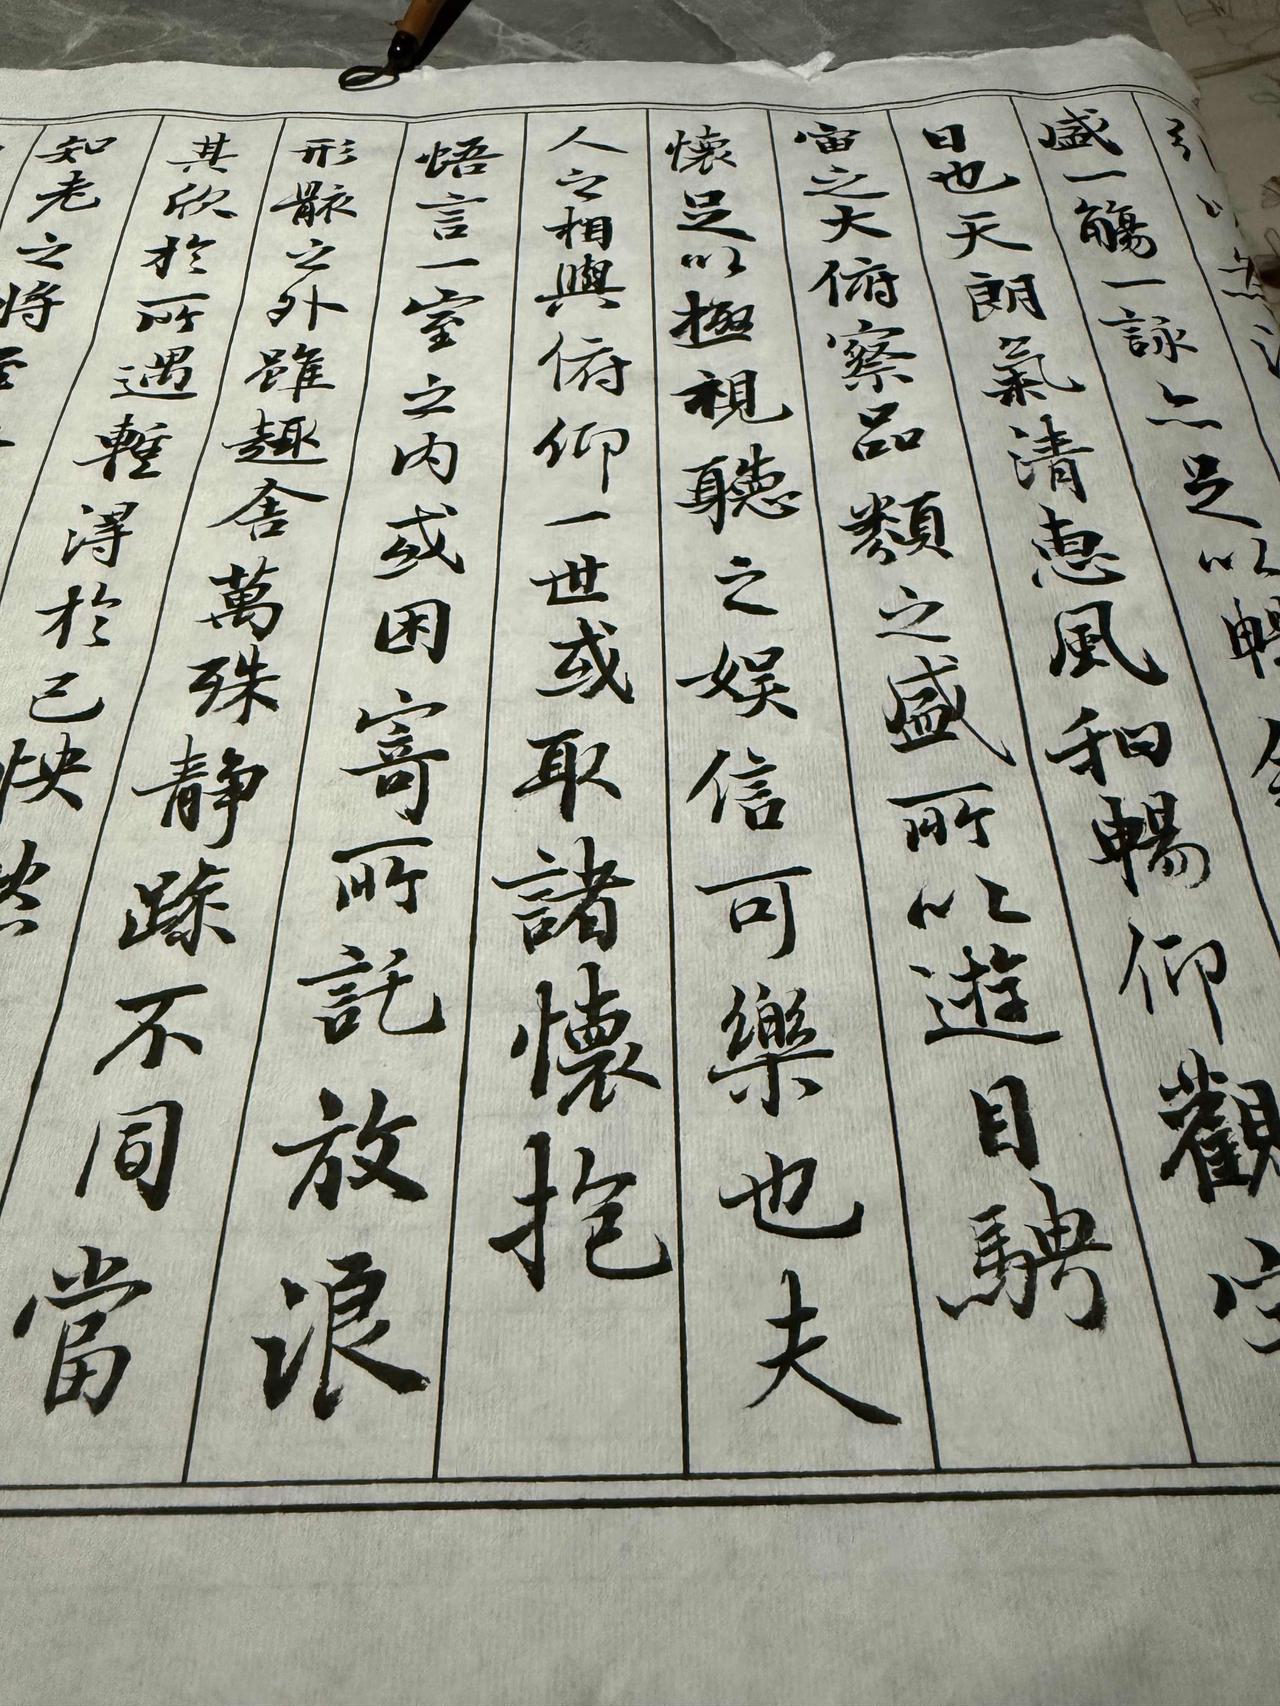 盛一觴一詠亦足以暢
日也天朗氣清惠風和暢仰觀宇
宙之大俯察品類之盛所以遊目騁
懷足以極視聽之娛信可樂也夫
人之相與俯仰一世或取諸懷抱
悟言一室之内或因寄所託放浪
形骸之外雖趣舍萬殊靜躁不同當
其欣於所遇暫得於己快然
知老之將至